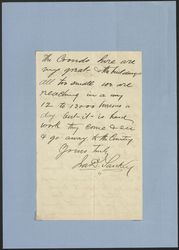 the Crowds here are
very great & the buildings
all too small we are
reaching in a way
12 to 13000 persons a
day but it is hard
work they come & see
& go away to the Country
Yours truly
Ira D. Sankey